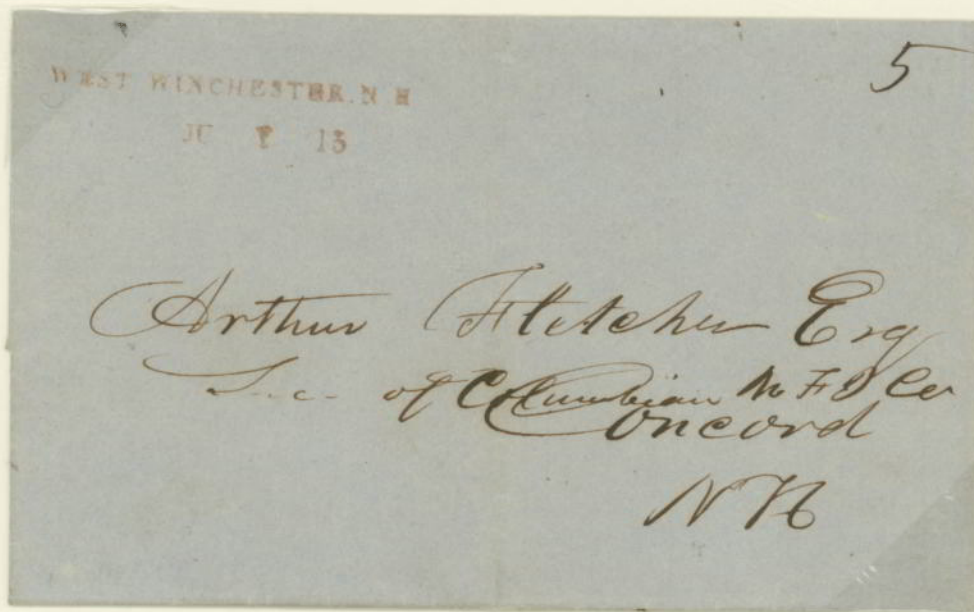 WEST WINCHESTER. N H
JU 13
5
Arthur Fletcher Esq
Sec. of Columbian M F I Co
Concord
N H